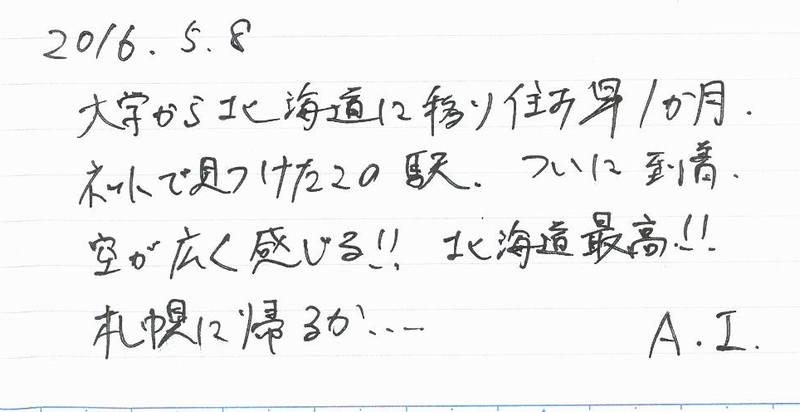 2016.5.8
大学から北海道に移り住み早1か月.
ネットで見つけたこの駅.ついに到着.
空が広く感じる!!北海道最高!!
札幌に帰るか...
A.I.